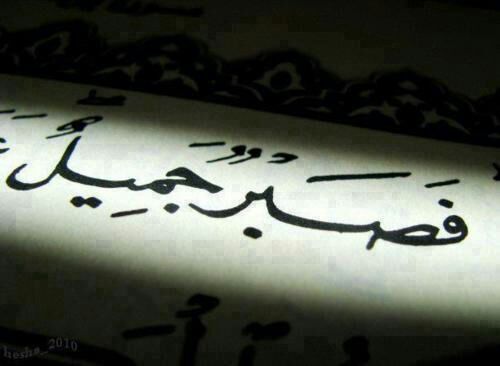 فَصَبْرٌ جَمِيلٌ
hesho_2010